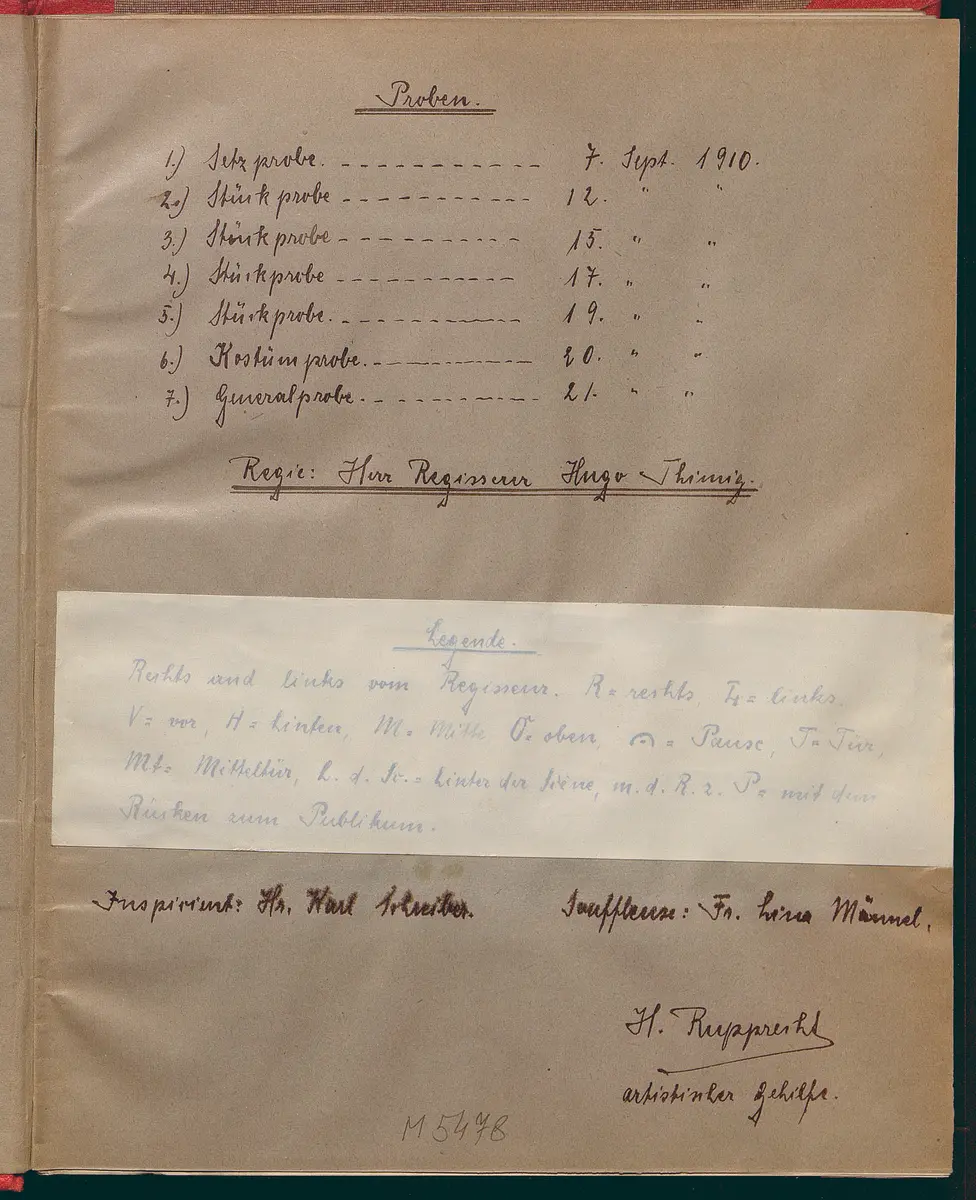 Proben.
1.) Setzprobe. - - - - - - - - - - - 7. Sept. 1910.
2.) Stückprobe - - - - - - - - - - 12. " "
3.) Stückprobe - - - - - - - - - - 15. " "
4.) Stückprobe - - - - - - - - - - 17. " "
5.) Stückprobe. - - - - - - - - - - 19. " "
6.) Kostümprobe. - - - - - - - - - 20. " "
7.) Generalprobe. - - - - - - - - - 21. " "
Regie: Herr Regisseur Hugo Thimig.
Legende.
Rechts und links vom Regisseur. R = rechts, L = links.
V = vor, H = hinten, M = Mitte O = oben, 𝄐 = Pause, T = Tür,
Mt = Mitteltür, h. d. Sc. = hinter der Scene, m. d. R. z. P = mit dem
Rücken zum Publikum.
Inspicient: Hr. Karl Schreiber. Souffleuse: Fr. Lina Männel.
H. Rupprecht
artistischer Gehilfe.
M 5478